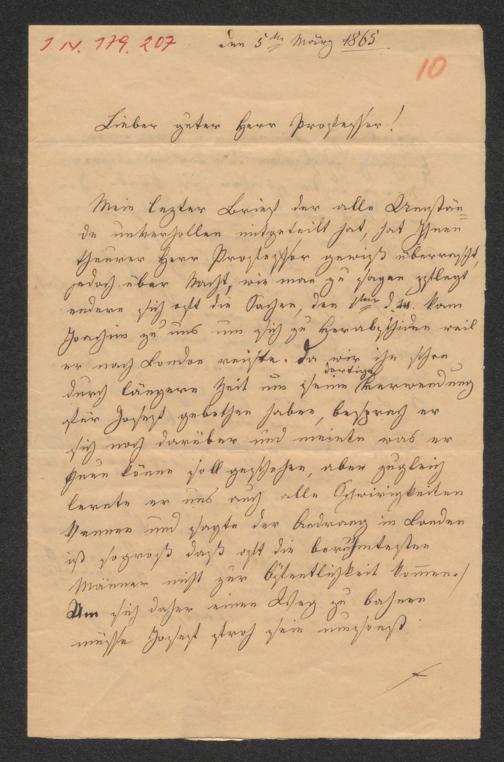 I N. 179.207
den 5ten März 1865
10
Lieber guter Herr Professor!
Mein lezter Brief der alle Umstän=
de unverhollen mitgeteilt hat, hat Ihnen
theurer Herr Professor gewiß überrascht,
jedoch über Nacht, wie man zu sagen pflegt
endern sich oft die Sachen, den 1ten d. M. kam
Joachim zu uns um sich zu verabschieden weil
er nach London reiste. Da wir ihn schon
durch längere Zeit um seine dortige Verwendung
für Josef gebethen haben, besprach er
sich noch darüber und meinte was er
thun könne soll geschehen, aber zugleich
lernte er uns auch alle Schwirigkeiten
kennen und sagte der Andrang in London
ist so groß daß oft die berühmtesten
Männer nicht zur Öffentlichkeit kommen.
Um sich daher einen Weg zu bahnen
müsse Josef froh sein umsonst